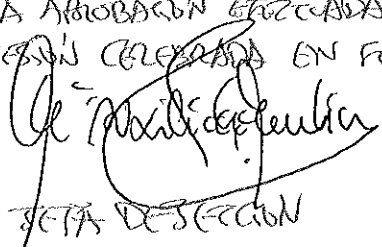 A APROBACIÓN EFECTUADA
SESIÓN CELEBRADA EN FE
JEFA DE SECCIÓN